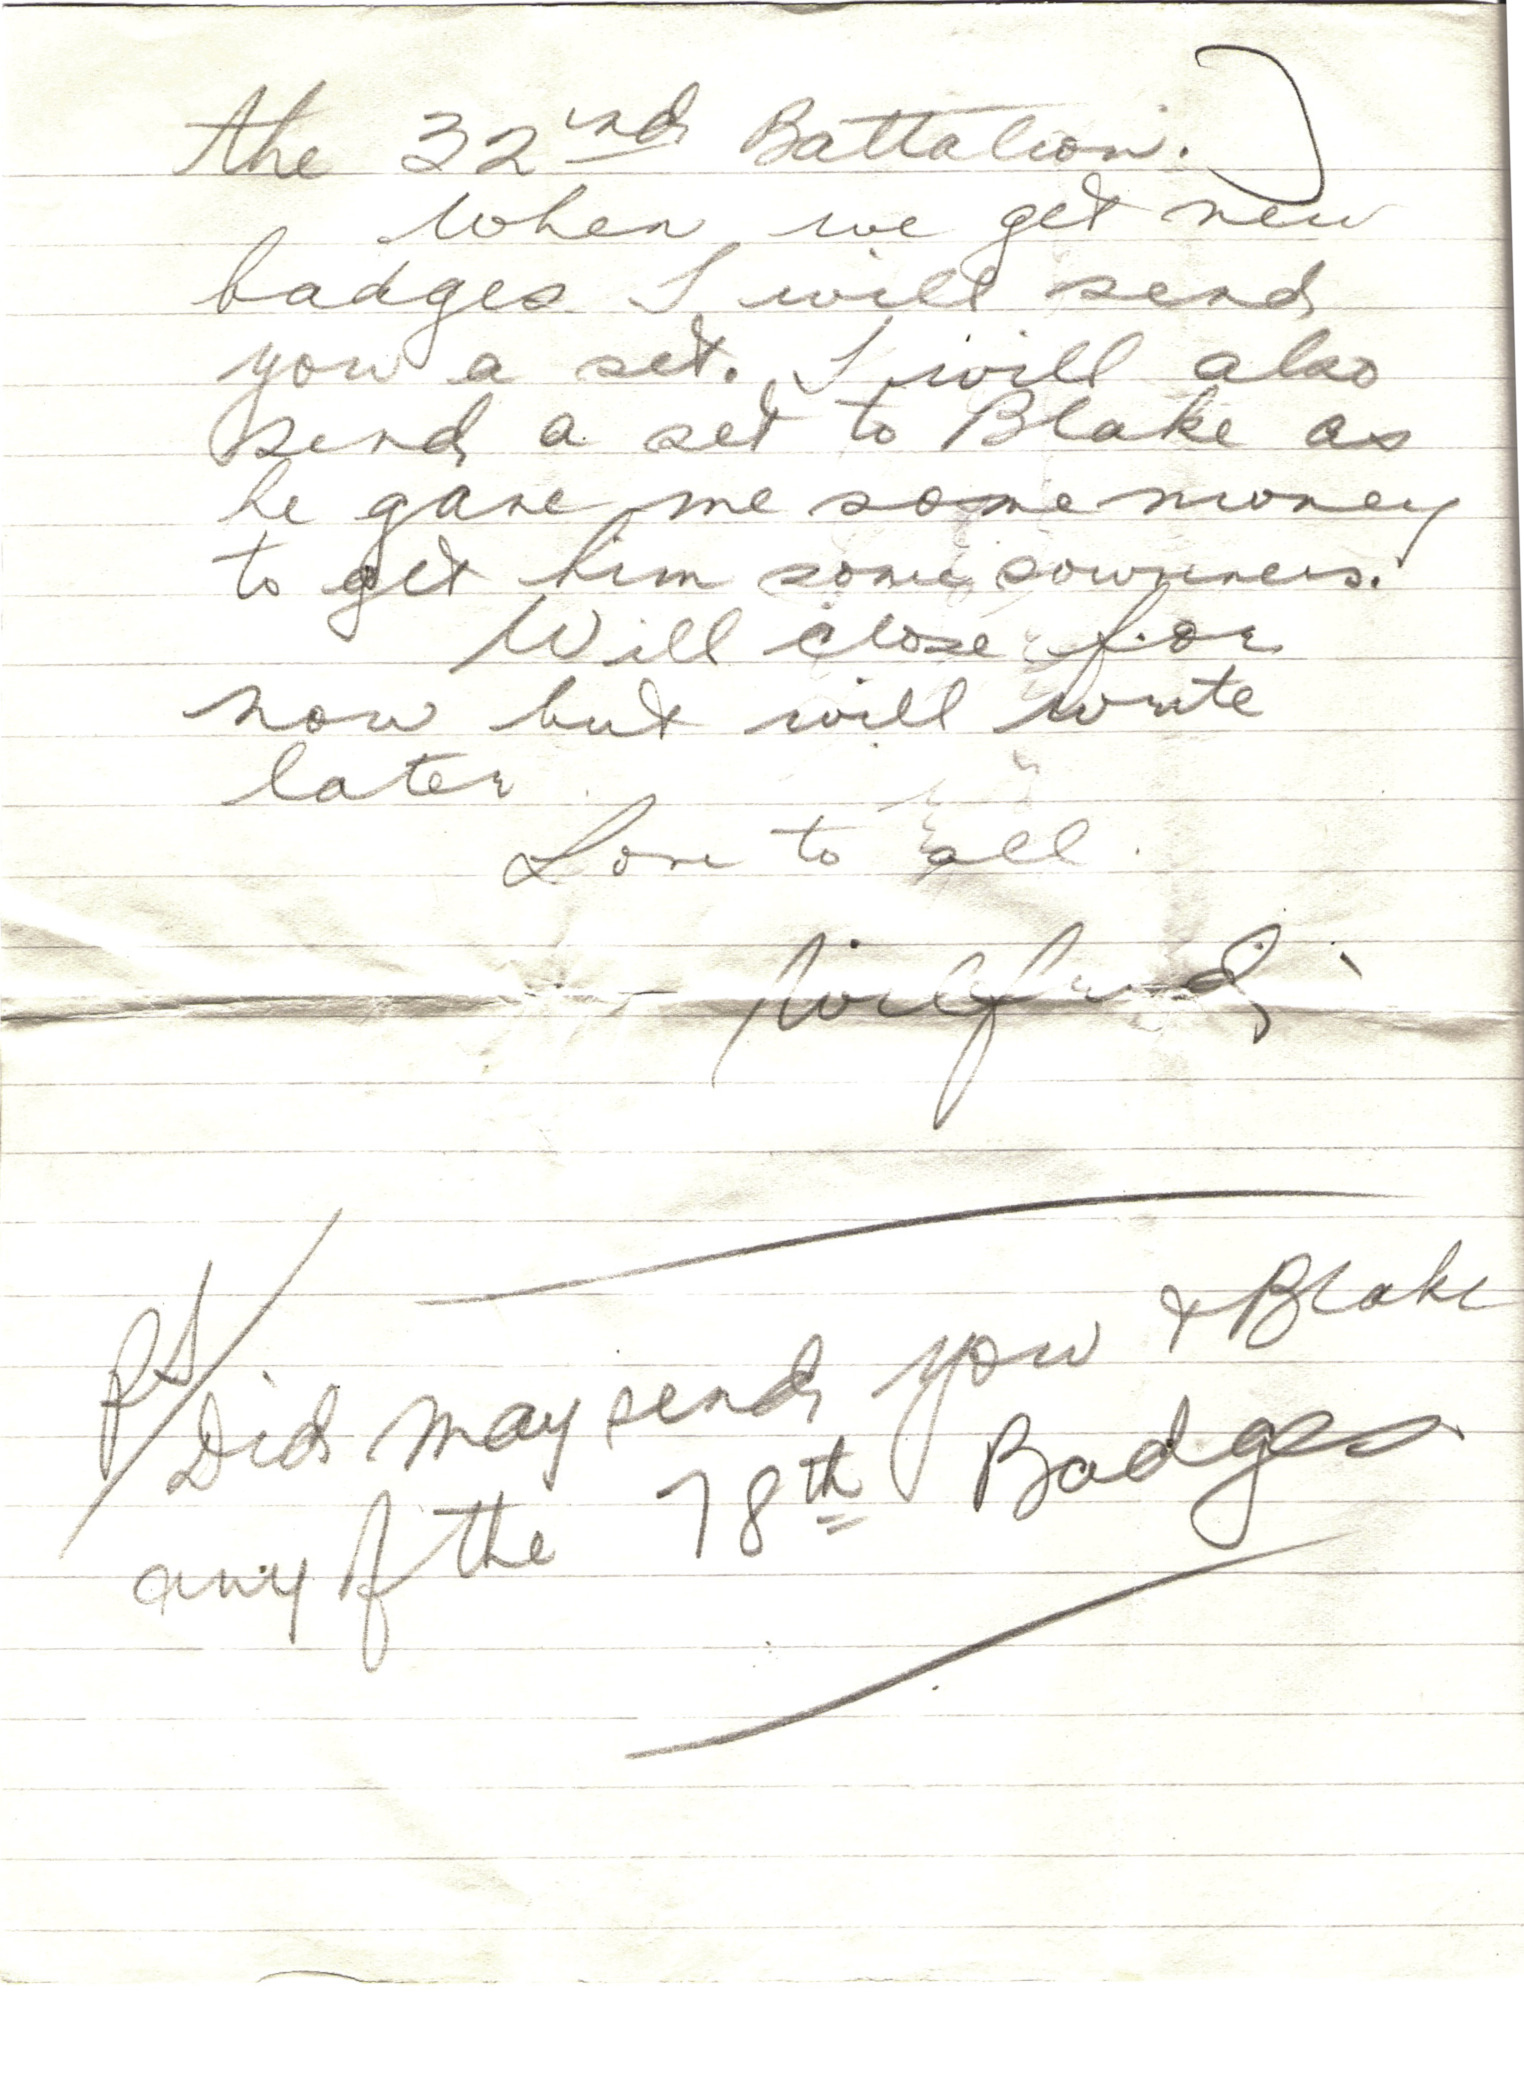 the 32nd Battalion.)
When we get new
badges I will send
you a set. I will also
send a set to Blake as
he gave me some money
to get him some souvineers.
Will close for
now but will write
later
Love to all.
Wilfred
PS/
& Blake
Did May send you
any of the 78th Badges